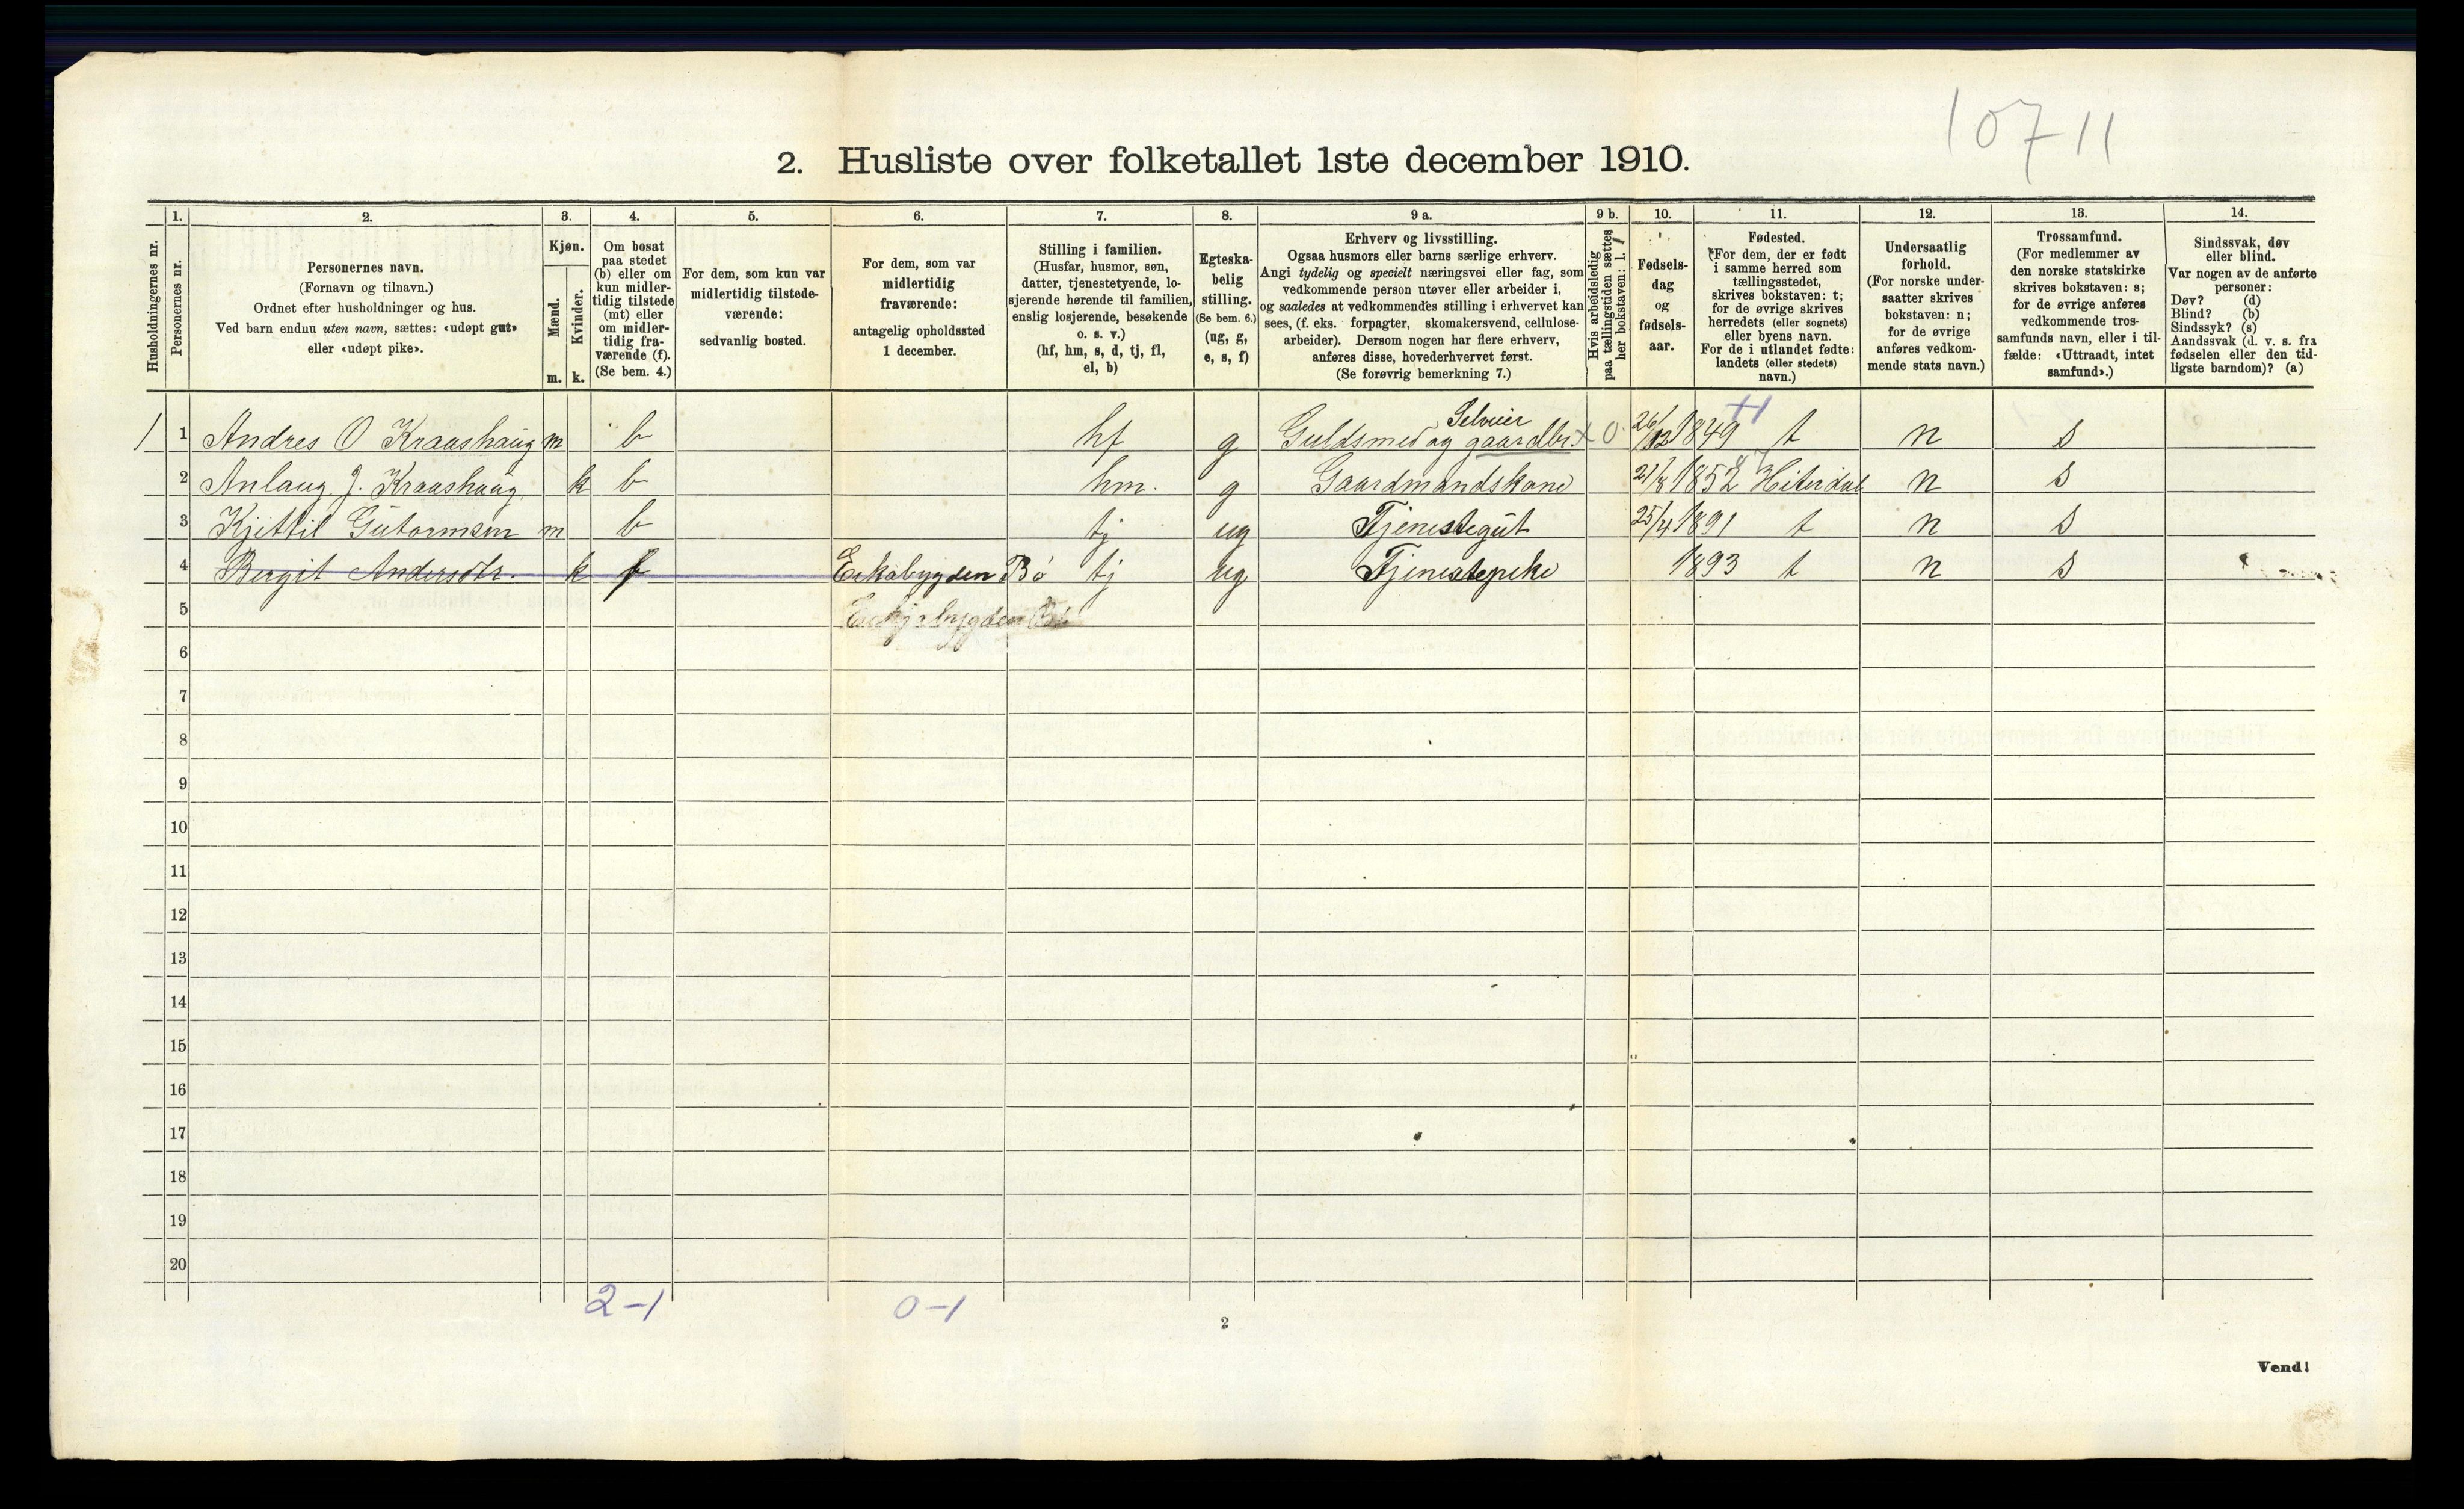 10711
2. Husliste over folketallet 1ste december 1910.
1. 2. 3. 4. 5. 6. 7. 8. 9 a. 9 b. 10. 11. 12. 13. 14.
Husholdningernes nr.
Personernes nr.
Personernes navn.
(Fornavn og tilnavn.)
Ordnet efter husholdninger og hus.
Ved barn endnu uten navn, sættes: «udøpt gut»
eller «udøpt pike».
Kjøn.
Mænd.
Kvinder.
m. k.
Om bosat
paa stedet
(b) eller om
kun midler-
tidig tilstede
(mt) eller
om midler-
tidig fra-
værende (f).
(Se bem. 4.)
For dem, som kun var
midlertidig tilstede-
værende:
sedvanlig bosted.
For dem, som var
midlertidig
fraværende:
antagelig opholdssted
1 december.
Stilling i familien.
(Husfar, husmor, søn,
datter, tjenestetyende, lo-
sjerende hørende til familien,
enslig losjerende, besøkende
o. s. v.)
(hf, hm, s, d, tj, fl,
el, b)
Egteska-
belig
stilling.
(Se bem. 6.)
(ug, g,
e, s, f)
Erhverv og livsstilling.
Ogsaa husmors eller barns særlige erhverv.
Angi tydelig og specielt næringsvei eller fag, som
vedkommende person utøver eller arbeider i,
og saaledes at vedkommendes stilling i erhvervet kan
sees, (f. eks. forpagter, skomakersvend, cellulose-
arbeider). Dersom nogen har flere erhverv,
anføres disse, hovederhvervet først.
(Se forøvrig bemerkning 7.)
Hvis arbeidsledig
paa tællingstiden sættes
her bokstaven: l.
Fødsels-
dag
og
fødsels-
aar.
Fødested.
(For dem, der er født
i samme herred som
tællingsstedet,
skrives bokstaven: t;
for de øvrige skrives
herredets (eller sognets)
eller byens navn.
For de i utlandet fødte:
landets (eller stedets)
navn.)
Undersaatlig
forhold.
(For norske under-
saatter skrives
bokstaven: n;
for de øvrige
anføres vedkom-
mende stats navn.)
Trossamfund.
(For medlemmer av
den norske statskirke
skrives bokstaven: s;
for de øvrige anføres
vedkommende tros-
samfunds navn, eller i til-
fælde: «Uttraadt, intet
samfund».)
Sindssvak, døv
eller blind.
Var nogen av de anførte
personer:
Døv? (d)
Blind? (b)
Sindssyk? (s)
Aandssvak (d. v. s. fra
fødselen eller den tid-
ligste barndom)? (a)
Selveier
1 1 Andres O Kraashaug m b hf g Guldsmed og gaardbr. x 0 26/12 1849 t n s
2 Anlaug J. Kraashaug k b hm. g Gaardmandskone 21/8 1852 Hiterdal n s
3 Kjittil Gutormsen m b tj ug Tjenestegut 25/4 1891 t n s
4 Bergit Andersdtr. k f Eikabygden Bø tj ug Tjenestepike 1893 t n s
5
6
7
8
9
10
11
12
13
14
15
16
17
18
19
20
2-1 0-1
2
Vend!